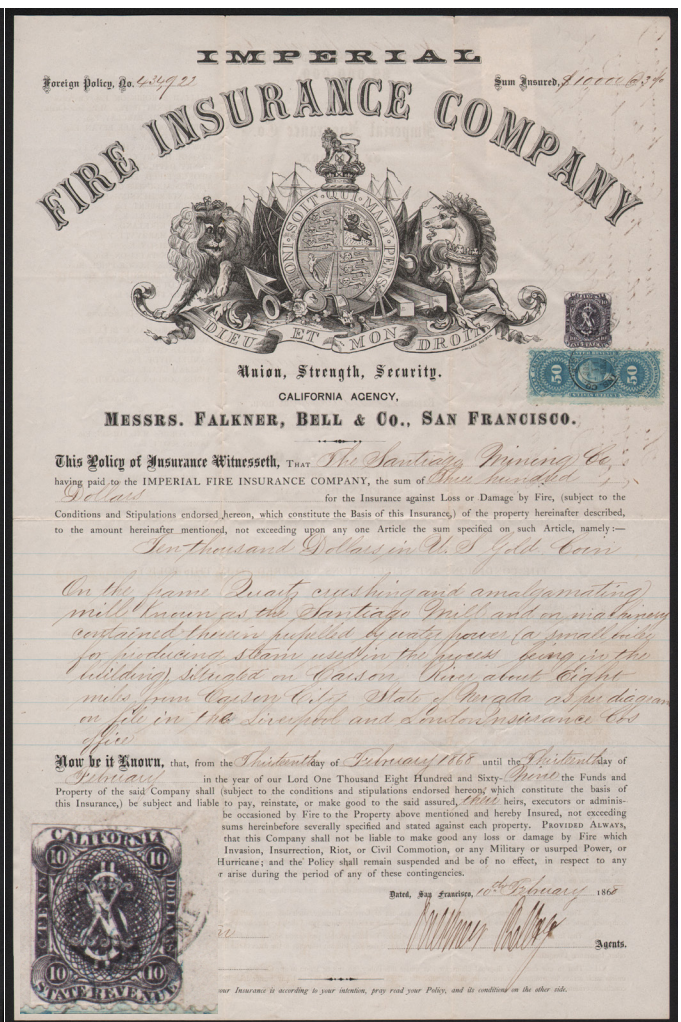 IMPERIAL
Foreign Policy, No. 434922
Sum Insured, $10000 @ 3%
FIRE INSURANCE COMPANY
HONI·SOIT·QUI·MAL·Y·PENSE
DIEU ET MON DROIT
CALIFORNIA
50 50
Union, Strength, Security.
CALIFORNIA AGENCY,
MESSRS. FALKNER, BELL & Co., SAN FRANCISCO.
This Policy of Insurance Witnesseth, THAT The Santiago Mining Co,
having paid to the IMPERIAL FIRE INSURANCE COMPANY, the sum of Three hundred
Dollars for the Insurance against Loss or Damage by Fire, (subject to the
Conditions and Stipulations endorsed hereon, which constitute the Basis of this Insurance,) of the property hereinafter described,
to the amount hereinafter mentioned, not exceeding upon any one Article the sum specified on such Article, namely:—
Ten thousand Dollars, in U.S Gold Coin
On the frame Quartz crushing and amalgamating
mill known as the Santiago Mill and on machinery
contained therein propelled by water power (a small boiler
for producing steam used in the process being in the
building) situated on Carson River about Eight
miles from Carson City State of Nevada as per diagram
on file in the Liverpool and London Insurance Cos
office
Now be it Known, that, from the Thirteenth day of February 1868 until the Thirteenth day of
February in the year of our Lord One Thousand Eight Hundred and Sixty-Nine the Funds and
Property of the said Company shall (subject to the conditions and stipulations endorsed hereon, which constitute the basis of
this Insurance,) be subject and liable to pay, reinstate, or make good to the said assured, their heirs, executors or adminis-
be occasioned by Fire to the Property above mentioned and hereby Insured, not exceeding
sums hereinbefore severally specified and stated against each property. PROVIDED ALWAYS,
that this Company shall not be liable to make good any loss or damage by Fire which
Invasion, Insurrection, Riot, or Civil Commotion, or any Military or usurped Power, or
Hurricane; and the Policy shall remain suspended and be of no effect, in respect to any
or arise during the period of any of these contingencies.
Dated, San Francisco, 10th February 1868
Falkner Bell & Co
Agents.
CALIFORNIA
10 10
TEN DOLLARS
10 10
STATE REVENUE
our Insurance is according to your intention, pray read your Policy, and its conditions on the other side.